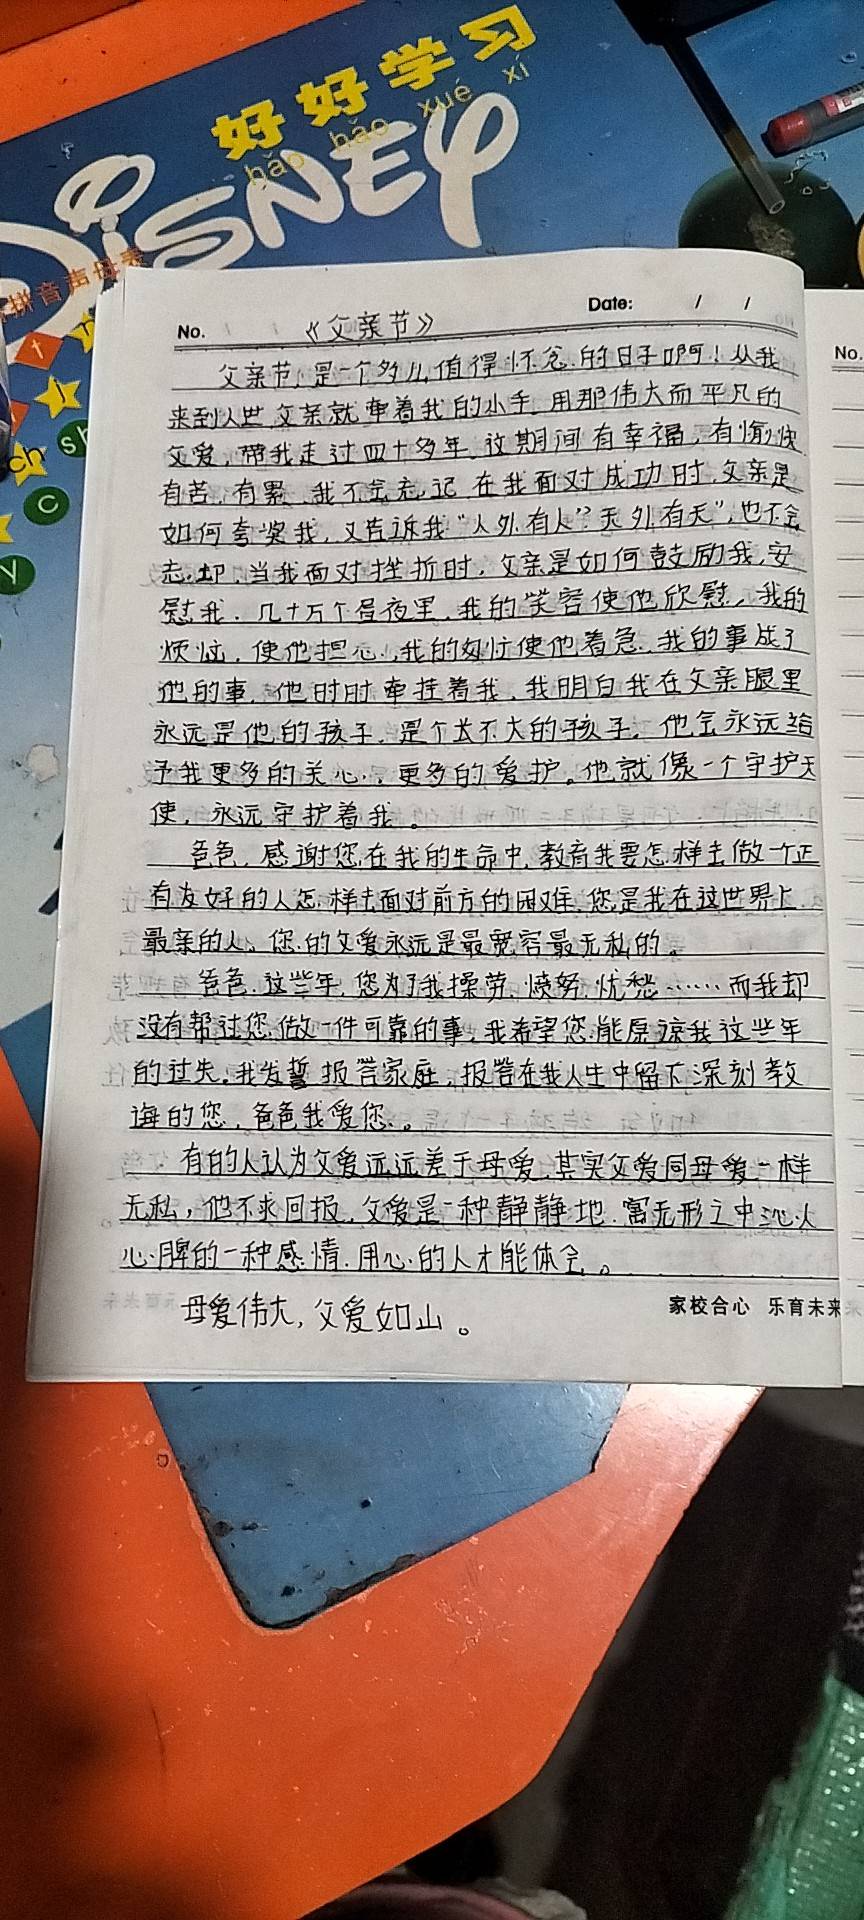 好好学习
hǎo hǎo xué xí
DISNEY
拼音声母表
No.
Date: / /
《父亲节》
父亲节,是一个多么值得怀念的日子啊!从我
来到人世父亲就牵着我的小手用那伟大而平凡的
父爱,带我走过四十多年这期间有幸福,有愉快
有苦,有累,我不会忘记在我面对成功时,父亲是
如何夸奖我,又告诉我“人外有人”?天外有天”,也不会
忘却,当我面对挫折时,父亲是如何鼓励我,安
慰我.几十万个昼夜里,我的笑容使他欣慰,我的
烦恼,使他担心,我的匆忙使他着急,我的事成了
他的事.他时时牵挂着我,我明白我在父亲眼里
永远是他的孩子,是个长不大的孩子,他会永远给
予我更多的关心,更多的爱护。他就像一个守护天
使,永远守护着我。
爸爸,感谢您在我的生命中,教育我要怎样去做一个正
有友好的人怎样去面对前方的困难.您是我在这世界上
最亲的人,您的父爱永远是最宽容最无私的。
爸爸.这些年,您为了我操劳,愤努,忧愁……而我却
没有帮过您做一件可靠的事,我希望您能原谅我这些年
的过失.我发誓报答家庭,报答在我人生中留下深刻教
诲的您,爸爸我爱您。
有的人认为父爱远远差于母爱,其实父爱同母爱一样
无私,他不求回报,父爱是一种静静地.寓无形之中沁人
心脾的一种感情.用心的人才能体会。
母爱伟大,父爱如山。
家校合心 乐育未来
No.